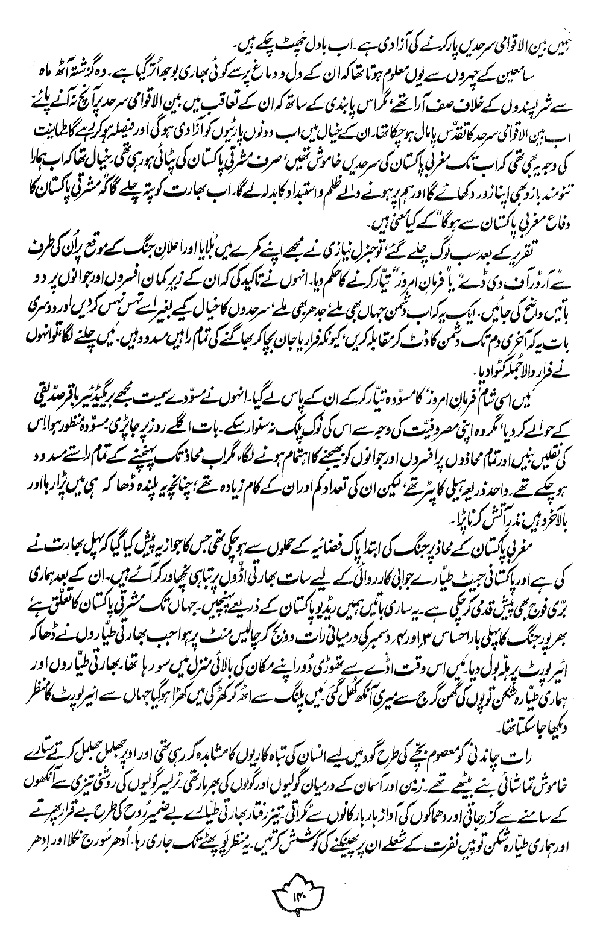 ہمیں بین الاقوامی سرحدیں پار کرنے کی آزادی ہے۔ اب بادل چھٹ چکے ہیں۔
سامعین کے چہروں سے یوں معلوم ہوتا تھا کہ ان کے دل و دماغ پر سے کوئی بھاری بوجھ اتر گیا ہے۔ وہ گزشتہ آٹھ ماہ
سے شرپسندوں کے خلاف صف آرا تھے، مگر اس پابندی کے ساتھ کہ ان کے تعاقب میں بین الاقوامی سرحد پر آنچ نہ آنے پائے
اب بین الاقوامی سرحد کا تقدس پامال ہو چکا تھا۔ ان کے خیال میں اب دونوں پارٹیوں کو آزادی ہوگی اور فیصلہ ہو کر رہے گا طمانیت
کی وجہ یہ بھی تھی کہ اب تک مغربی پاکستان کی سرحدیں خاموش تھیں، صرف مشرقی پاکستان کی پٹائی ہو رہی تھی۔ خیال تھا کہ اب ہمارا
تنومند بازو بھی اپنا زور دکھائے گا اور ہم پر ہونے والے ظلم و استبداد کا بدلہ لے گا۔ اب بھارت کو پتہ چلے گا کہ "مشرقی پاکستان کا
دفاع مغربی پاکستان سے ہوگا" کے کیا معنی ہیں۔
تقریر کے بعد سب لوگ چلے گئے، تو جنرل نیازی نے مجھے اپنے کمرے میں بلایا اور اعلانِ جنگ کے موقع پر اُن کی طرف
سے "آرڈر آف دی ڈے" یا "فرمانِ امروز" تیار کرنے کا حکم دیا۔ انہوں نے تاکید کی کہ ان کے زیرِ کمان افسروں اور جوانوں پر دو
باتیں واضح کی جائیں۔ ایک یہ کہ اب دشمن جہاں بھی ملے، جدھر بھی ملے، سرحدوں کا خیال کیے بغیر اسے تہس نہس کر دیں اور دوسری
بات یہ کہ آخری دم تک دشمن کا ڈٹ کر مقابلہ کریں، کیونکہ فرار یا جان بچا کر بھاگنے کی تمام راہیں مسدود ہیں۔ میں چلنے لگا، تو انہوں
نے فرار والا جملہ کٹوا دیا۔
میں اسی شام "فرمانِ امروز" کا مسودہ تیار کر کے ان کے پاس لے گیا۔ انہوں نے مسودے سمیت مجھے بریگیڈیئر باقر صدیقی
کے حوالے کر دیا، مگر وہ اپنی مصروفیت کی وجہ سے اس کی نوک پلک نہ سنوار سکے۔ بات اگلے روز پر جا پڑی۔ مسودہ منظور ہوا، اس
کی نقلیں بنیں اور تمام محاذوں پر افسروں اور جوانوں کو بھیجنے کا اہتمام ہونے لگا، مگر اب محاذ تک پہنچنے کے تمام راستے مسدود
ہو چکے تھے۔ واحد ذریعہ ہیلی کاپٹر تھے، لیکن ان کی تعداد کم اور ان کے کام زیادہ تھے؛ چنانچہ یہ پلندہ ڈھاکہ ہی میں پڑا رہا اور
بالآخر وہیں نذرِ آتش کرنا پڑا۔
مغربی پاکستان کے محاذ پر جنگ کی ابتدا پاک فضائیہ کے حملوں سے ہو چکی تھی جس کا جواز یہ پیش کیا گیا کہ پہل بھارت نے
کی ہے اور پاکستانی جیٹ طیارے جوابی کارروائی کے لیے سات بھارتی اڈوں پر تباہی نچھاور کر آئے ہیں۔ ان کے بعد ہماری
بری فوج بھی پیش قدمی کر چکی ہے۔ یہ ساری باتیں ہمیں ریڈیو پاکستان کے ذریعے پہنچیں۔ جہاں تک مشرقی پاکستان کا تعلق ہے
بھرپور جنگ کا پہلی بار احساس ۳ اور ۴ دسمبر کی درمیانی رات دو بج کر چالیس منٹ پر ہوا جب بھارتی طیاروں نے ڈھاکہ
ائیرپورٹ پر ہلہ بول دیا۔ میں اس وقت اڈے سے تھوڑی دور اپنے مکان کی بالائی منزل میں سو رہا تھا۔ بھارتی طیاروں اور
ہماری طیارہ شکن توپوں کی گھن گرج سے میری آنکھ کھل گئی۔ میں پلنگ سے اٹھ کر کھڑکی میں کھڑا ہو گیا جہاں سے ائیرپورٹ کا منظر
دیکھا جا سکتا تھا۔
رات چاندنی کو معصوم بچے کی طرح گود میں لیے انسان کی تباہ کاریوں کا مشاہدہ کر رہی تھی اور اوپر جھلمل جھلمل کرتے ستارے
خاموش تماشائی بنے بیٹھے تھے۔ زمین اور آسمان کے درمیان گولیوں اور گولوں کی بھرمار تھی۔ ٹریسر گولیوں کی روشنی تیزی سے آنکھوں
کے سامنے سے گزر جاتی اور دھماکوں کی آواز بار بار کانوں سے ٹکراتی۔ تیز رفتار بھارتی طیارے بے ضمیر روح کی طرح بے قرار پھرتے
اور ہماری طیارہ شکن توپیں نفرت کے شعلے ان پر پھینکنے کی کوشش کرتیں۔ یہ منظر پَو پھٹنے تک جاری رہا۔ اُدھر سورج نکلا اور اِدھر
۱۴۰